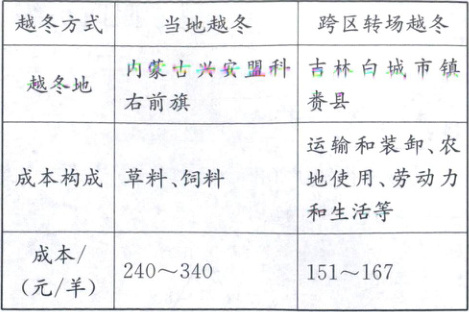 越冬方式 当地越冬 跨区转场越冬
越冬地
内蒙古兴安盟科
右前旗
吉林白城市镇
赉县
成本构成
草料、饲料
运输和装卸、农
地使用、劳动力
和生活等
成本/
(元/羊)
240～340
151～167